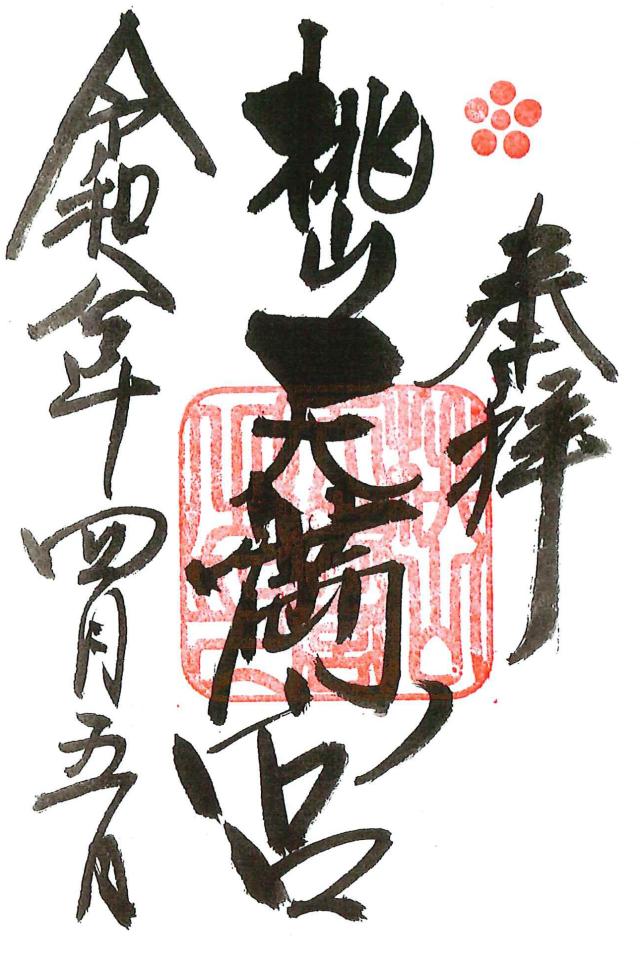 奉拝
桃山天満宮
令和 年四月五日